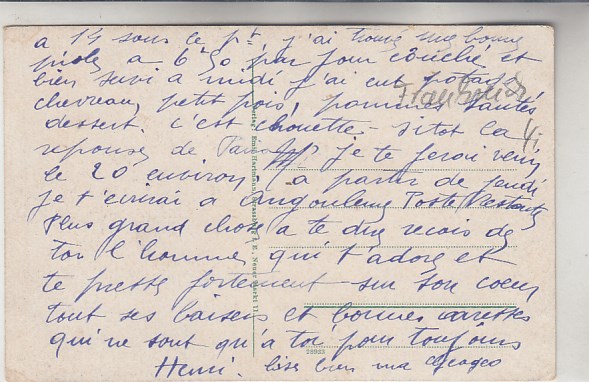 a 14 sous le pt j'ai trouvé une bonne
piole a 6.50 par jour couché et
bien servi a midi j'ai eut potage
chevreau, petit pois, pommes sautés
dessert. c'est chouette. sitot la
reponse de je te ferai venir
le 20 environ. a partir de jeudi
je t'ecrirai a Angouleme Poste Restante
plus grand chose a te dire recois de
ton l'homme qui t'adore et
te presse fortement sur son coeur
tout ses baisers et bonnes caresses
qui ne sont qu'a toi pour toujours
Henri. bise bien ma
4.
28963